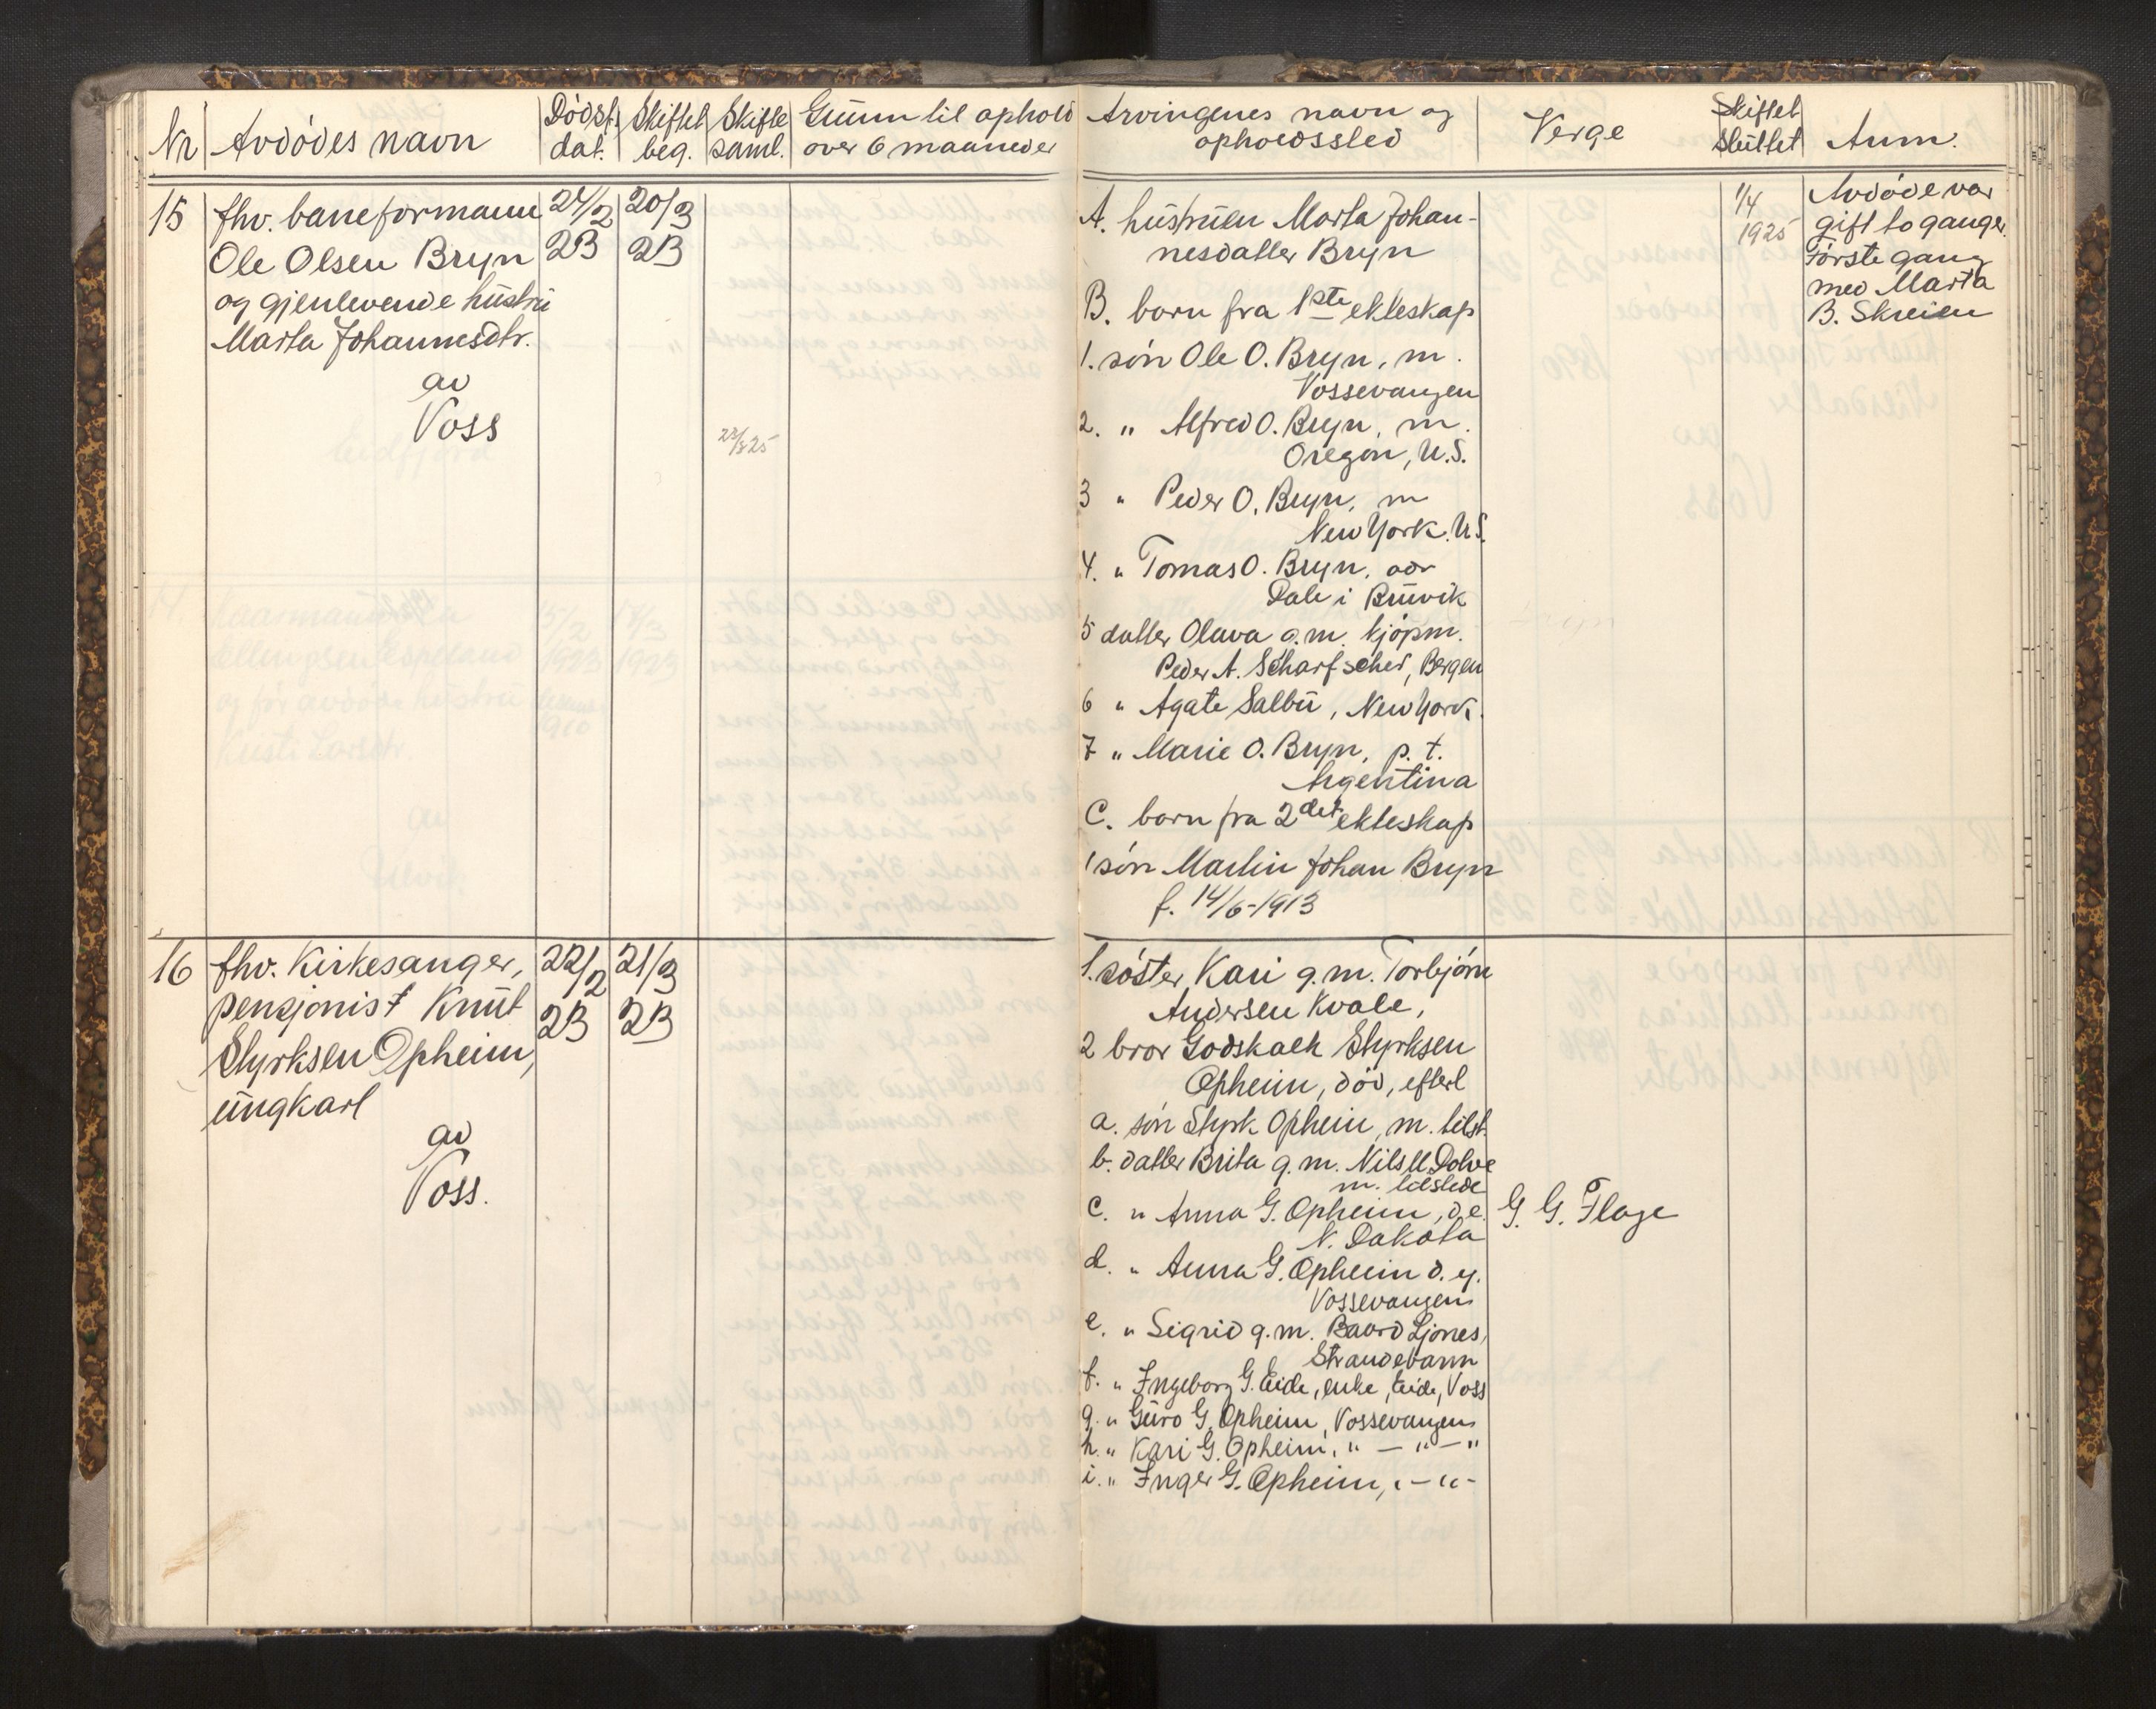 Nr
Avdødes navn
Dødsf.
dat.
Skiftet
beg.
Skifte
saml.
Grunn til ophold
over 6 maaneder
Arvingenes navn og
opholdssted
Verge
Skiftet
sluttet
Anm.
15
fhv. baneformann
Ole Olsen Bryn
og gjenlevende hustru
Marta Johannesdtr.
av
Voss
24/2
23
20/3
23
A. hustruen Marta Johan-
nesdatter Bryn
B. born fra 1ste ekteskap
1. søn Ole O. Bryn, m.
Vossevangen
2. " Alfred O. Bryn, m.
Oregon, U.S.
3 " Peder O. Bryn, m
New York. U.S.
4. " Tomas O. Bryn,
Dale i Bruvik
5 datter Olava g.m. kjøpm.
Peder A. Scharfscher, Bergen
6 " Agate Salbu, New York.
7 " Marie O. Bryn, p. t.
Argentina
C. born fra 2det ekteskap
1 søn Martin Johan Bryn
f. 14/6-1913
1/4
1925
Avdøde var
gift to ganger.
Første gang
med Marta
B. Skreien
16
fhv. Kirkesanger,
pensjonist Knut
Styrksen Opheim,
ungkarl
av
Voss.
22/2
23
21/3
23
1. søster Kari g.m. Torbjørn
Andersen Kvale,
2 bror Godskalk Styrksen
Opheim, død, efterl
a. søn Styrk Opheim, m. tilst.
b. datter Brita g.m. Nils Dolve
m. tilstede
c. " Anna G. Opheim, d.e.
N. Dakota
G. G. Flage
d. " Anna G. Opheim d. y.
Vossevangen
e. " Sigrid g.m. Baard Ljones,
Strandebarm
f. " Ingeborg G. Eide, enke, Eide, Voss
g. " Guro G. Opheim, Vossevangen
h. " Kari G. Opheim, " — " — "
i. " Inger G. Opheim, " — " -